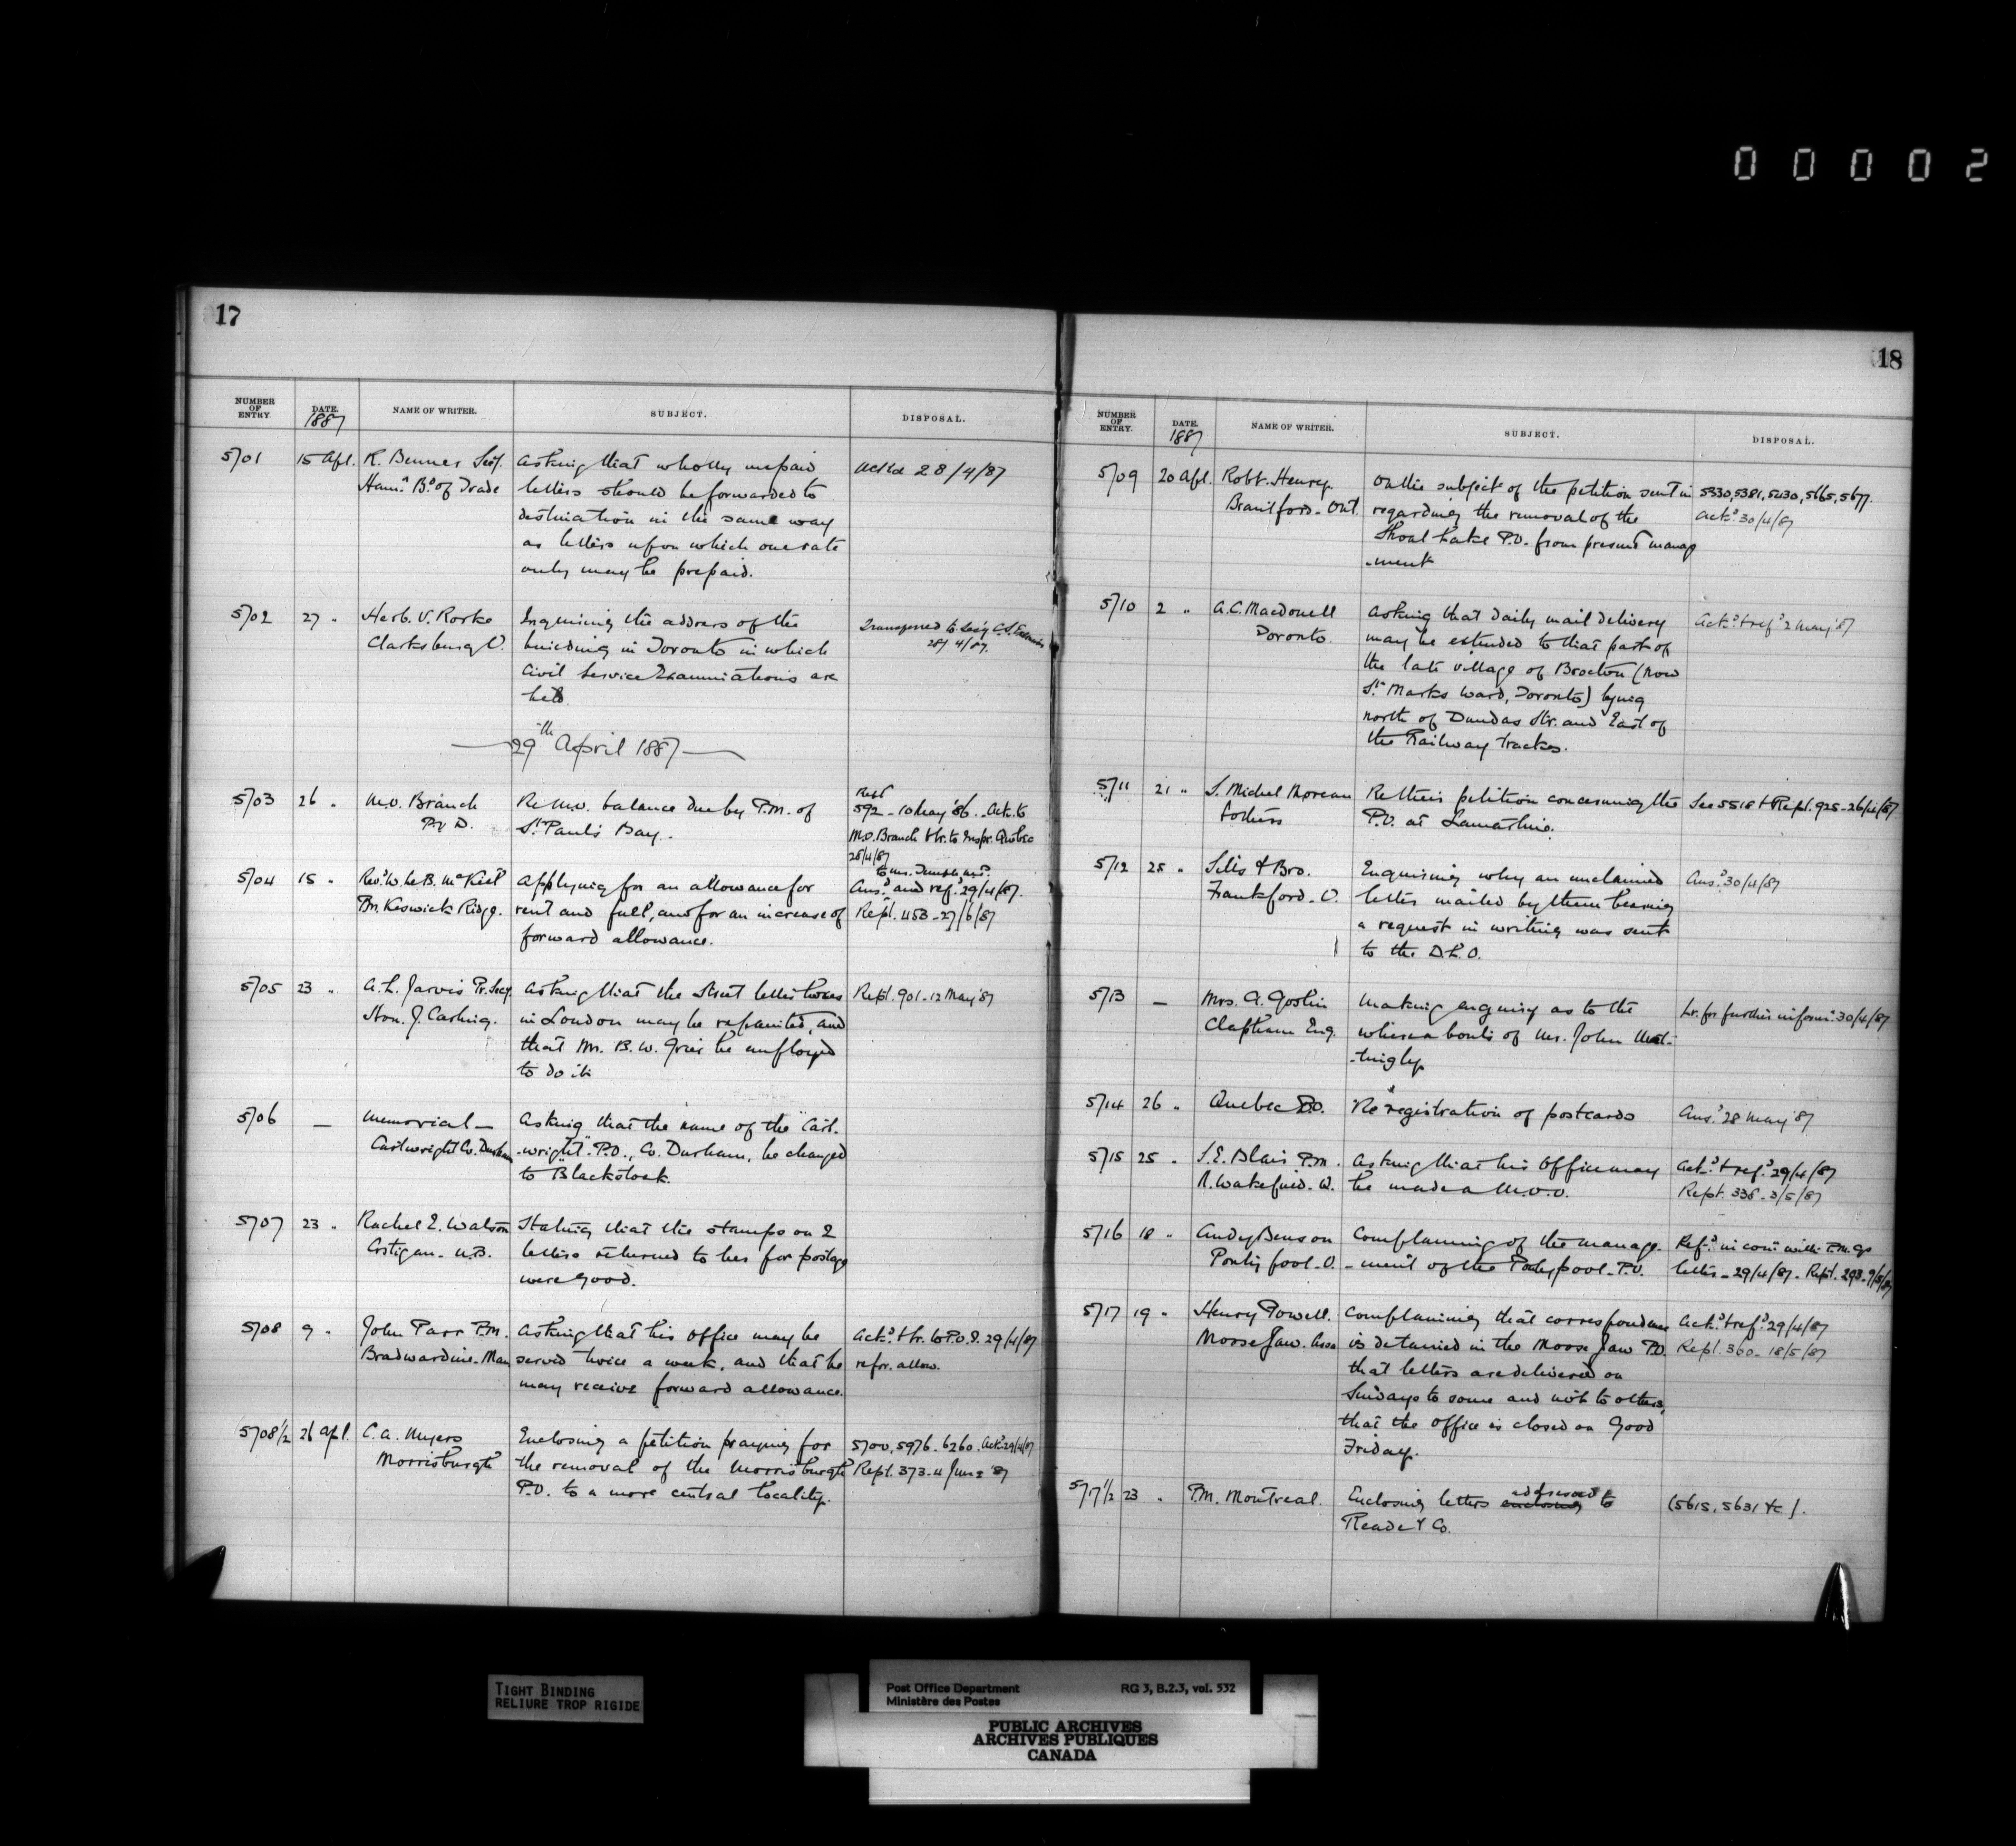 00002
17
NUMBER OF ENTRY. DATE. 1887 NAME OF WRITER. SUBJECT. DISPOSAL.
5701 15 Apl. R. Benner Secy. Asking that wholly unpaid Ack'd 28/4/87
Ham.n B.d of Trade letters should be forwarded to
destination in the same way
as letters upon which one rate
only may be prepaid.
5702 27 " Herb. V. Rorke Inquiring the address of the Transferred to Secy C.S. Examiners
Clarksburg O. building in Toronto in which 28/4/87.
Civil Service Examinations are
held
29th April 1887
5703 26 " M.O. Branch Re M.O. balance due by P.M. of Rept 592 - 10 May '86. Ack. to
P.O.D. St. Paul's Bay. M.O. Branch & lr. to Inspr. Quebec
28/4/87
5704 15 " Rev.d W. LeB. McKiel Applying for an allowance for Ans.d and ref.d 29/4/87.
Br. Keswick Ridge. rent and fuel, and for an increase of Rept. 453 - 27/6/87
forward allowance.
5705 23 " A.L. Jarvis Pr. Secy. Asking that the Street letter boxes Rept. 901 - 12 May '87
Hon. J. Carling. in London may be repainted, and
that Mr. B.W. Greer be employed
to do it
5706 — Memorial — Asking that the name of the "Cart-
Cartwright Co. Durham -wright" P.O., Co. Durham, be changed
to "Blackstock.
5707 23 " Rachel E. Watson Stating that the stamps on 2
Costigan - N.B. letters returned to her for postage
were good.
5708 9 " John Parr P.M. Asking that his office may be Ack.d & lr. to P.O.I. 29/4/87
Bradwardine - Man served twice a week, and that he re for. allow.
may receive forward allowance.
5708½ 26 Apl. C.A. Myers Enclosing a petition praying for 5700, 5976 - 6260. Ack.d 29/4/87
Morrisburgh the removal of the Morrisburgh Rept. 373 - 4 June '87
P.O. to a more central locality.
18
NUMBER OF ENTRY. DATE. 1887 NAME OF WRITER. SUBJECT. DISPOSAL.
5709 20 Apl. Robt. Henry. On the subject of the petition sent in 5330, 5381, 5430, 5665, 5677.
Brantford - Ont. regarding the removal of the Ack.d 30/4/87
Shoal Lake P.O. from present manage
-ment
5710 2 " A.C. Macdonell Asking that daily mail delivery Ack.d & ref.d 2 May '87
Toronto may be extended to that part of
the late village of Brocton (now
St. Marks Ward, Toronto) lying
north of Dundas Str. and East of
the Railway tracks.
5711 21 " S. Michel Moreau Re their petition concerning the See 5518 & Rept. 925 - 26/4/87
& others P.O. at Lamartine.
5712 25 " Sills & Bro. Enquiring why an unclaimed Ans.d 30/4/87
Frankford - O. letter mailed by them bearing
a request in writing was sent
to the D.L.O.
5713 — Mrs. A. Goslin Making enquiry as to the Lr. for further inform.n 30/4/87
Clapham Eng. whereabouts of Mr. John Mat-
-tingly.
5714 26 " Quebec P.O. Re registration of postcards Ans.d 28 May '87
5715 25 " S.E. Blair P.M. Asking that his Office may Ack.d & ref.d 29/4/87
N. Wakefield. Q. be made a M.O.O. Rept. 338 - 3/5/87
5716 18 " Andy Benson Complaining of the manage- Ref.d in con.n with P.M. G's
Pontypool - O. -ment of the Pontypool - P.O. letter - 29/4/87 - Rept. 293 - 9/5/87
5717 19 " Henry Powell. Complaining that correspondence Ack.d & ref.d 29/4/87
Moose Jaw. Assa is detained in the Moose Jaw P.O. Rept. 360 - 18/5/87
that letters are delivered on
Sundays to some and not to others,
that the office is closed on Good
Friday.
5717½ 23 " P.M. Montreal. Enclosing letters addressed to (5615, 5631 &c).
Reade & Co.
TIGHT BINDING
RELIURE TROP RIGIDE
Post Office Department RG 3, B.2.3, vol. 532
Ministère des Postes
PUBLIC ARCHIVES
ARCHIVES PUBLIQUES
CANADA